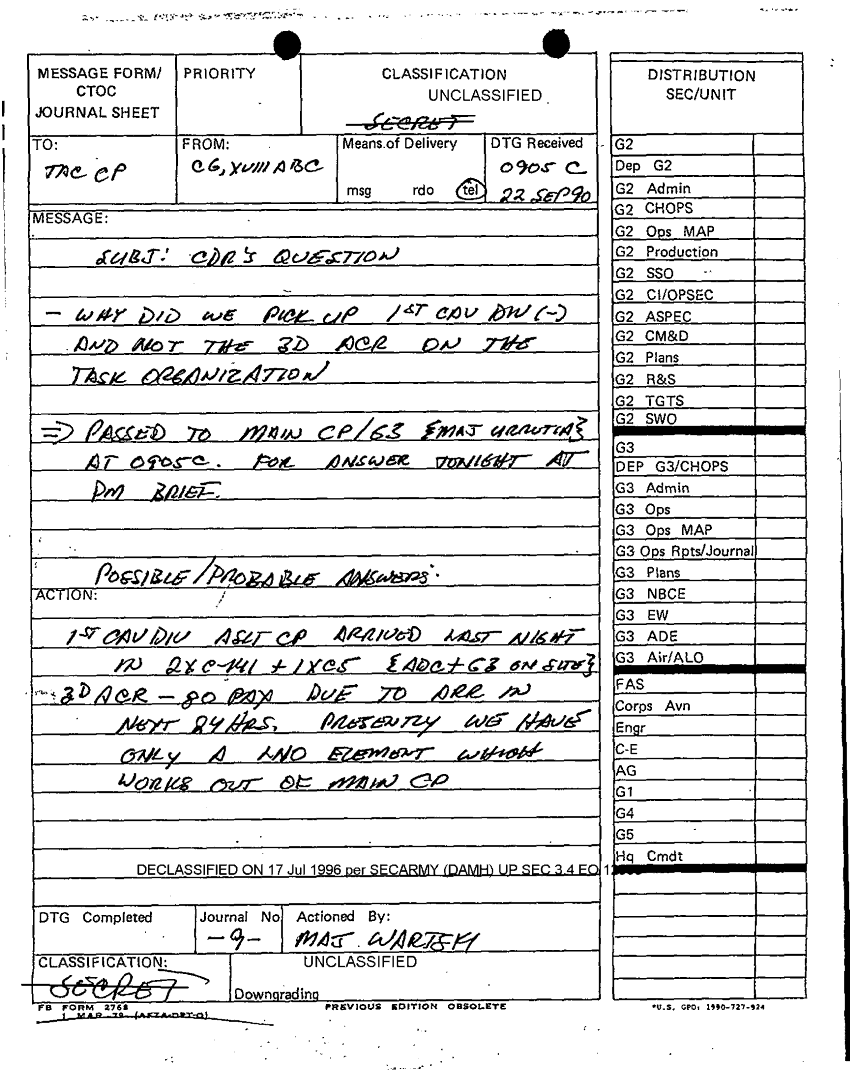 MESSAGE FORM/
CTOC
JOURNAL SHEET
PRIORITY
CLASSIFICATION
UNCLASSIFIED
SECRET
TO:
TAC CP
FROM:
CG, XVIII ABC
Means of Delivery
msg rdo tel
DTG Received
0905 C
22 SEP 90
MESSAGE:
SUBJ: CDR'S QUESTION
- WHY DID WE PICK UP 1ST CAV DIV (-)
AND NOT THE 3D ACR ON THE
TASK ORGANIZATION
=> PASSED TO MAIN CP/G3 {MAJ URRUTIA}
AT 0905C. FOR ANSWER TONIGHT AT
PM BRIEF.
POSSIBLE/PROBABLE ANSWERS:
ACTION:
1ST CAV DIV ASLT CP ARRIVED LAST NIGHT
IN 2XC-141 + 1XC5 {ADC + G3 ON SITE}
3D ACR - 80 PAX DUE TO ARR IN
NEXT 24 HRS. PRESENTLY WE HAVE
ONLY A LNO ELEMENT WHICH
WORKS OUT OF MAIN CP
DECLASSIFIED ON 17 Jul 1996 per SECARMY (DAMH) UP SEC 3.4 EO
DTG Completed
Journal No
-9-
Actioned By:
MAJ
CLASSIFICATION:
SECRET
UNCLASSIFIED
Downgrading
FB FORM 2768
1 MAR 79 (AFZA-DPT-O)
PREVIOUS EDITION OBSOLETE
DISTRIBUTION
SEC/UNIT
G2
Dep G2
G2 Admin
G2 CHOPS
G2 Ops MAP
G2 Production
G2 SSO
G2 CI/OPSEC
G2 ASPEC
G2 CM&D
G2 Plans
G2 R&S
G2 TGTS
G2 SWO
G3
DEP G3/CHOPS
G3 Admin
G3 Ops
G3 Ops MAP
G3 Ops Rpts/Journal
G3 Plans
G3 NBCE
G3 EW
G3 ADE
G3 Air/ALO
FAS
Corps Avn
Engr
C-E
AG
G1
G4
G5
Hq Cmdt
*U.S. GPO: 1990-727-924